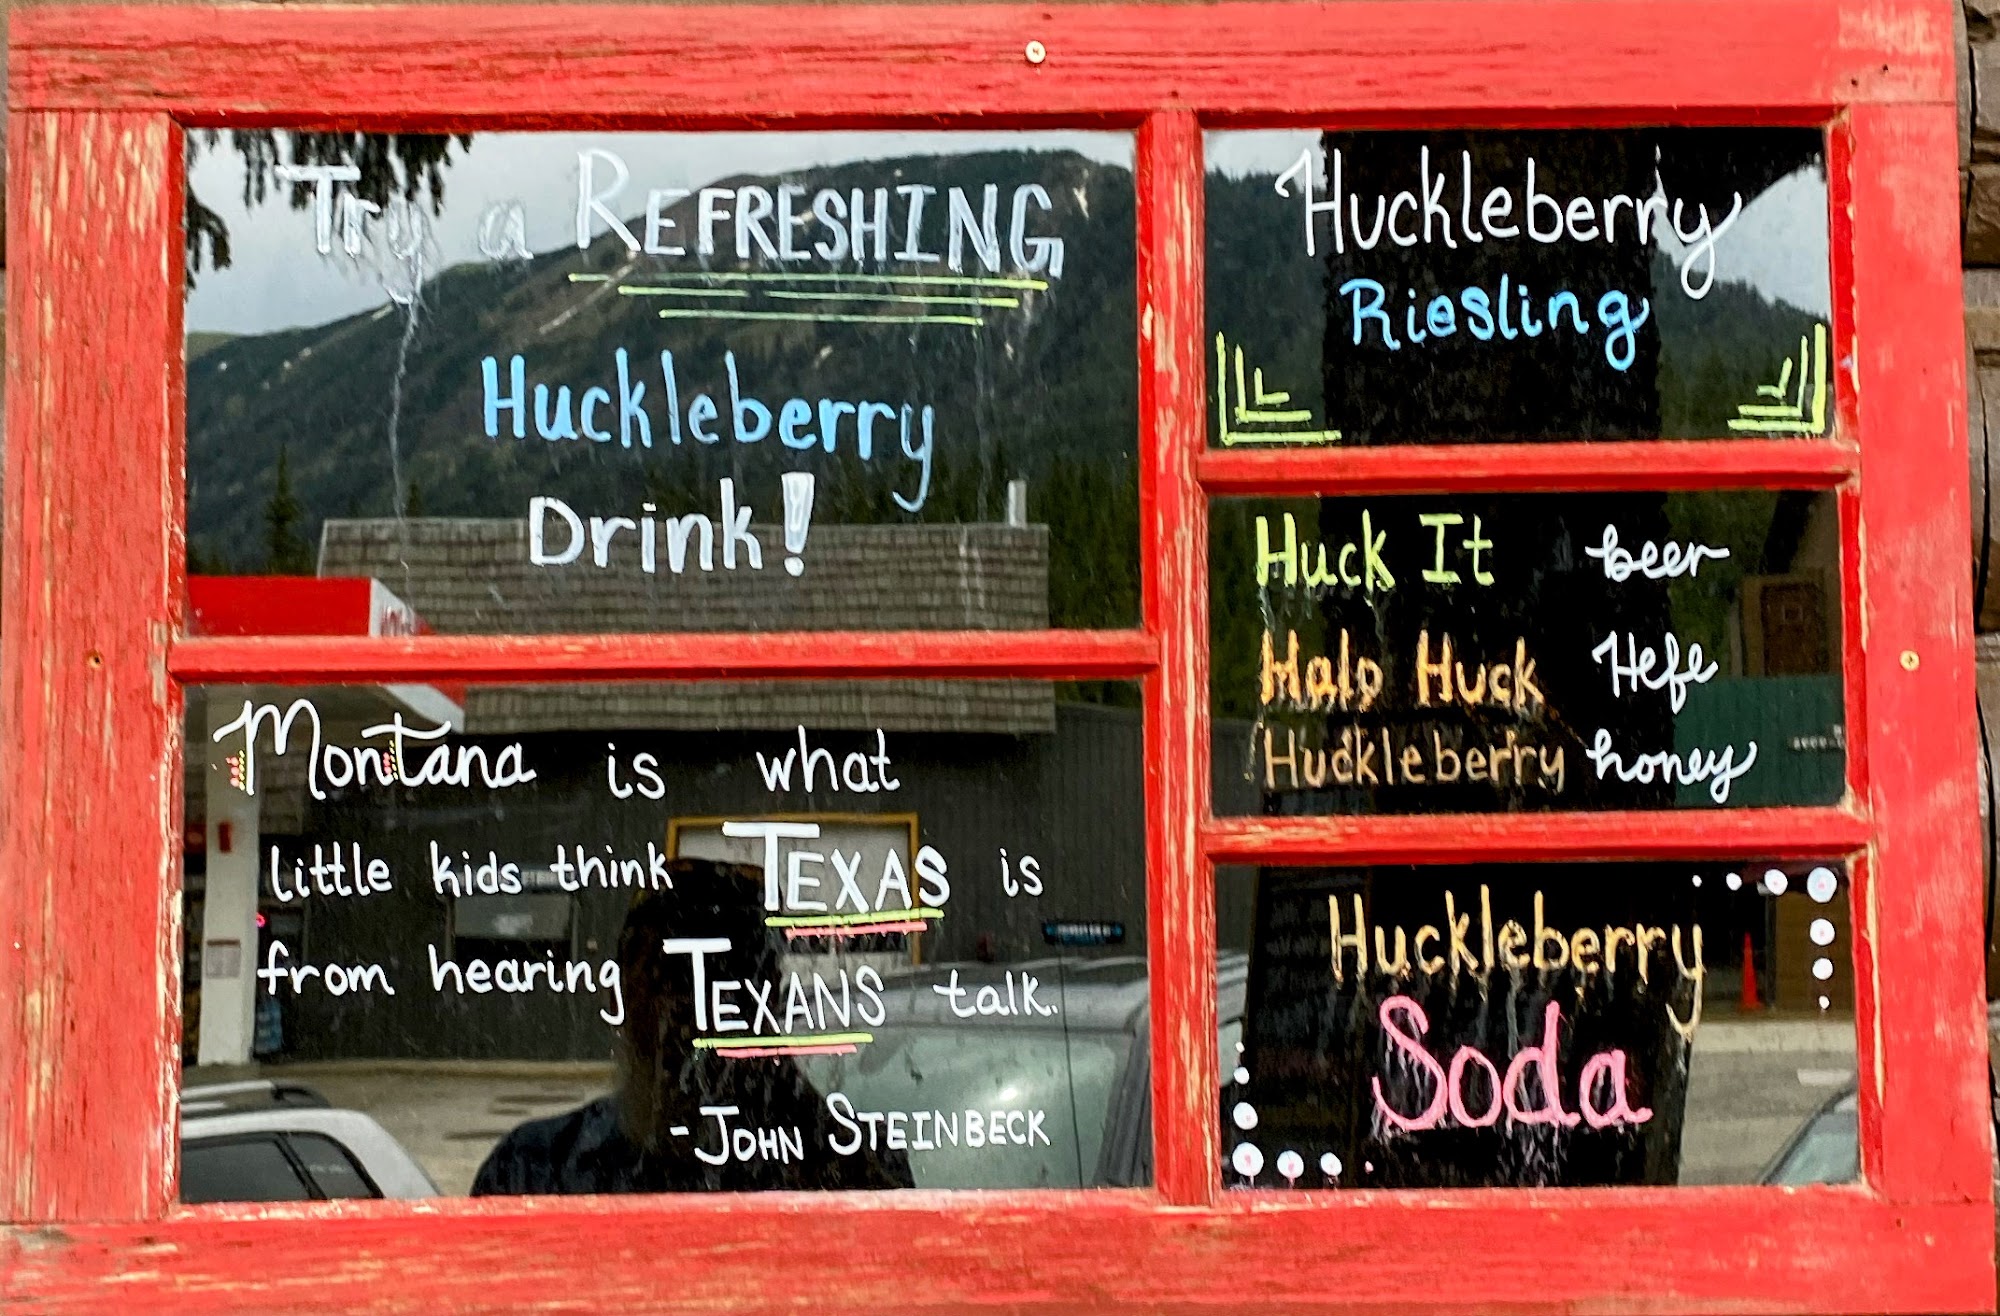 Try a REFRESHING
Huckleberry
Drink!
Montana is what
little kids think TEXAS is
from hearing TEXANS talk.
-JOHN STEINBECK
Huckleberry
Riesling
Huck It beer
Halo Huck Hefe
Huckleberry honey
Huckleberry
Soda